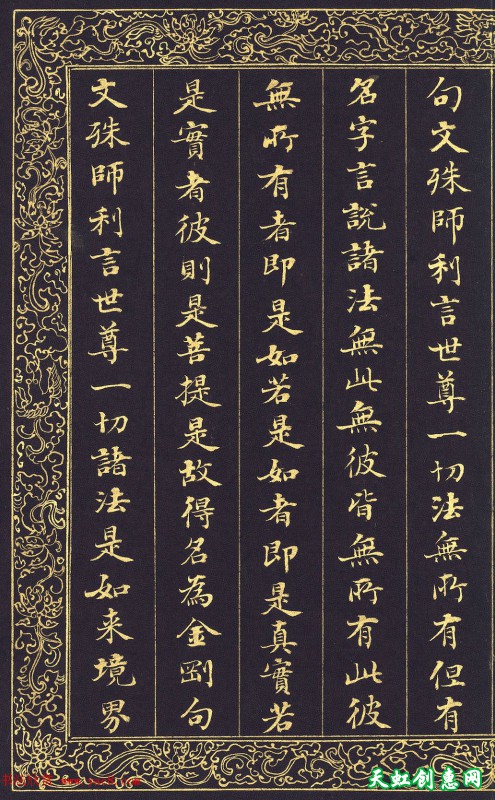 句文殊師利言世尊一切法無所有但有
名字言說諸法無此無彼皆無所有此彼
無所有者即是如若是如者即是真實若
是實者彼則是菩提是故得名為金剛句
文殊師利言世尊一切諸法是如来境界
天虹创意网